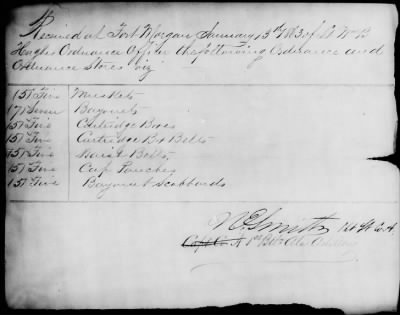 Received at Fort Morgan January 3rd 1863 of Lt Wm B
Hughes Ordnance Officer the following Ordnance and
Ordnance Stores viz
(5) Five Muskets
(7) Seven Bayonets
(5) Five Cartridge Boxes
(5) Five Cartridge Bx Belts
(5) Five Waist Belts
(5) Five Cap Pouches
(5) Five Bayonet Scabbards
N E Smith 1st Lt Co A
Capt Co A 1st Batt Ala Artillery